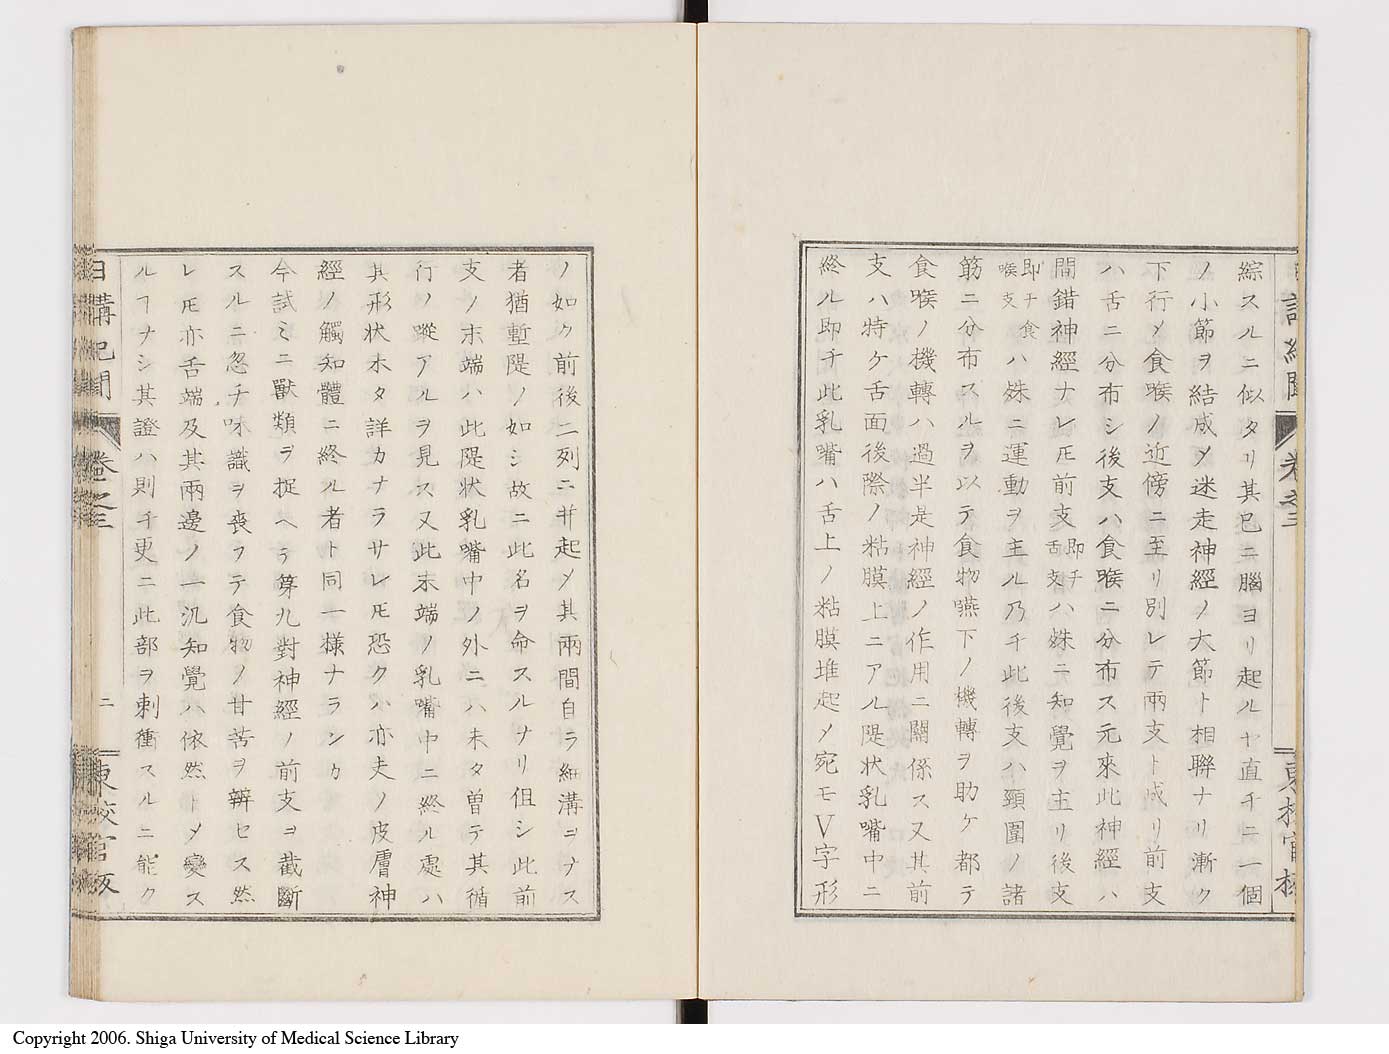 綜スルニ似タリ其已ニ腦ヨリ起ルヤ直チニ一個
ノ小節ヲ結成メ迷走神經ノ大節ト相聯ナリ漸ク
下行メ食喉ノ近傍ニ至リ別レテ兩支ト成リ前支
ハ舌ニ分布シ後支ハ食喉ニ分布ス元來此神經ハ
間錯神經ナレ𪜈前支即チ舌支者ハ殊ニ知覺ヲ主リ後支
即チ食喉支ハ殊ニ運動ヲ主ル乃チ此後支ハ頸圍ノ諸
筋ニ分布スルヲ以テ食物嚥下ノ機轉ヲ助ケ都テ
食喉ノ機轉ハ過半是神經ノ作用ニ關係ス又其前
支ハ特ケ舌面後際ノ粘膜上ニアル隄状乳嘴中ニ
終ル即チ此乳嘴ハ舌上ノ粘膜堆起メ宛モV字形
ノ如ク前後二列ニ並起メ其兩間自ラ細溝ヲナス
者猶塹隄ノ如シ故ニ此名ヲ命スルナリ但シ此前
支ノ末端ハ此隄状乳嘴中ノ外ニハ未タ曽テ其循
行ノ蹤アルヲ見ス又此末端ノ乳嘴中ニ終ル處ハ
其形状未タ詳カナラサレ𪜈恐クハ亦夫ノ皮膚神
經ノ觸知體ニ終ル者ト同一様ナランカ
今試ミニ獸類ヲ捉ヘテ第九對神經ノ前支ヲ截斷
スルニ忽チ味識ヲ喪フテ食物ノ甘苦ヲ辨セス然
レ𪜈亦舌端及其兩邊ノ一汎知覺ハ依然トメ變ス
ルヿナシ其證ハ則チ更ニ此部ヲ刺衝スルニ能ク
日講記聞 卷之三 二 東校官版
Copyright 2006. Shiga University of Medical Science Library